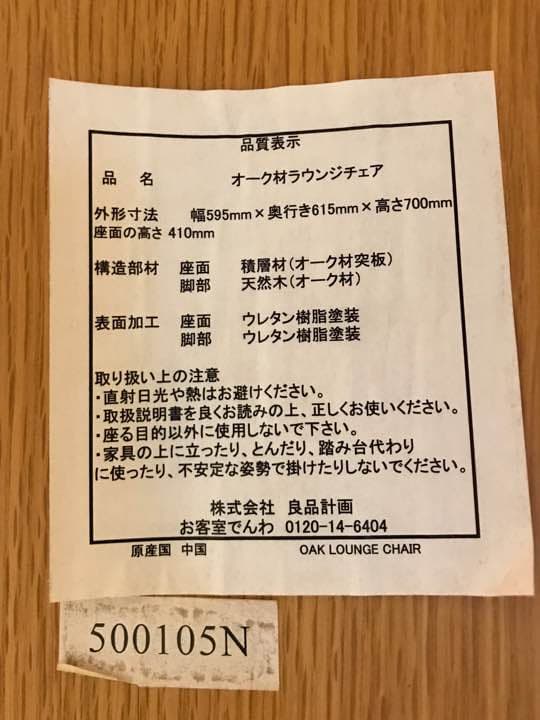 品質表示
品 名 オーク材ラウンジチェア
外形寸法 幅595mm×奥行き615mm×高さ700mm
座面の高さ 410mm
構造部材 座面 積層材(オーク材突板)
脚部 天然木(オーク材)
表面加工 座面 ウレタン樹脂塗装
脚部 ウレタン樹脂塗装
取り扱い上の注意
・直射日光や熱はお避けください。
・取扱説明書を良くお読みの上、正しくお使いください。
・座る目的以外に使用しないで下さい。
・家具の上に立ったり、とんだり、踏み台代わり
に使ったり、不安定な姿勢で掛けたりしないでください。
株式会社 良品計画
お客室でんわ 0120-14-6404
原産国 中国 OAK LOUNGE CHAIR
500105N